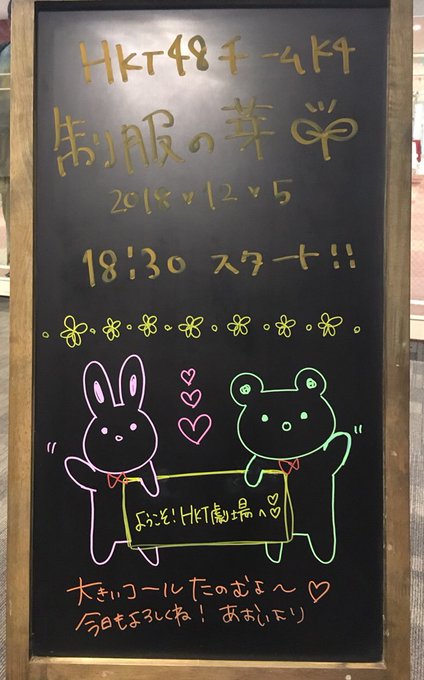 HKT48 チームK4
制服の芽
2018♥12♥5
18:30 スタート!!
ようこそ！HKT劇場へ♡♡
大きいコールたのむよ〜♡
今日もよろしくね！ あおいより